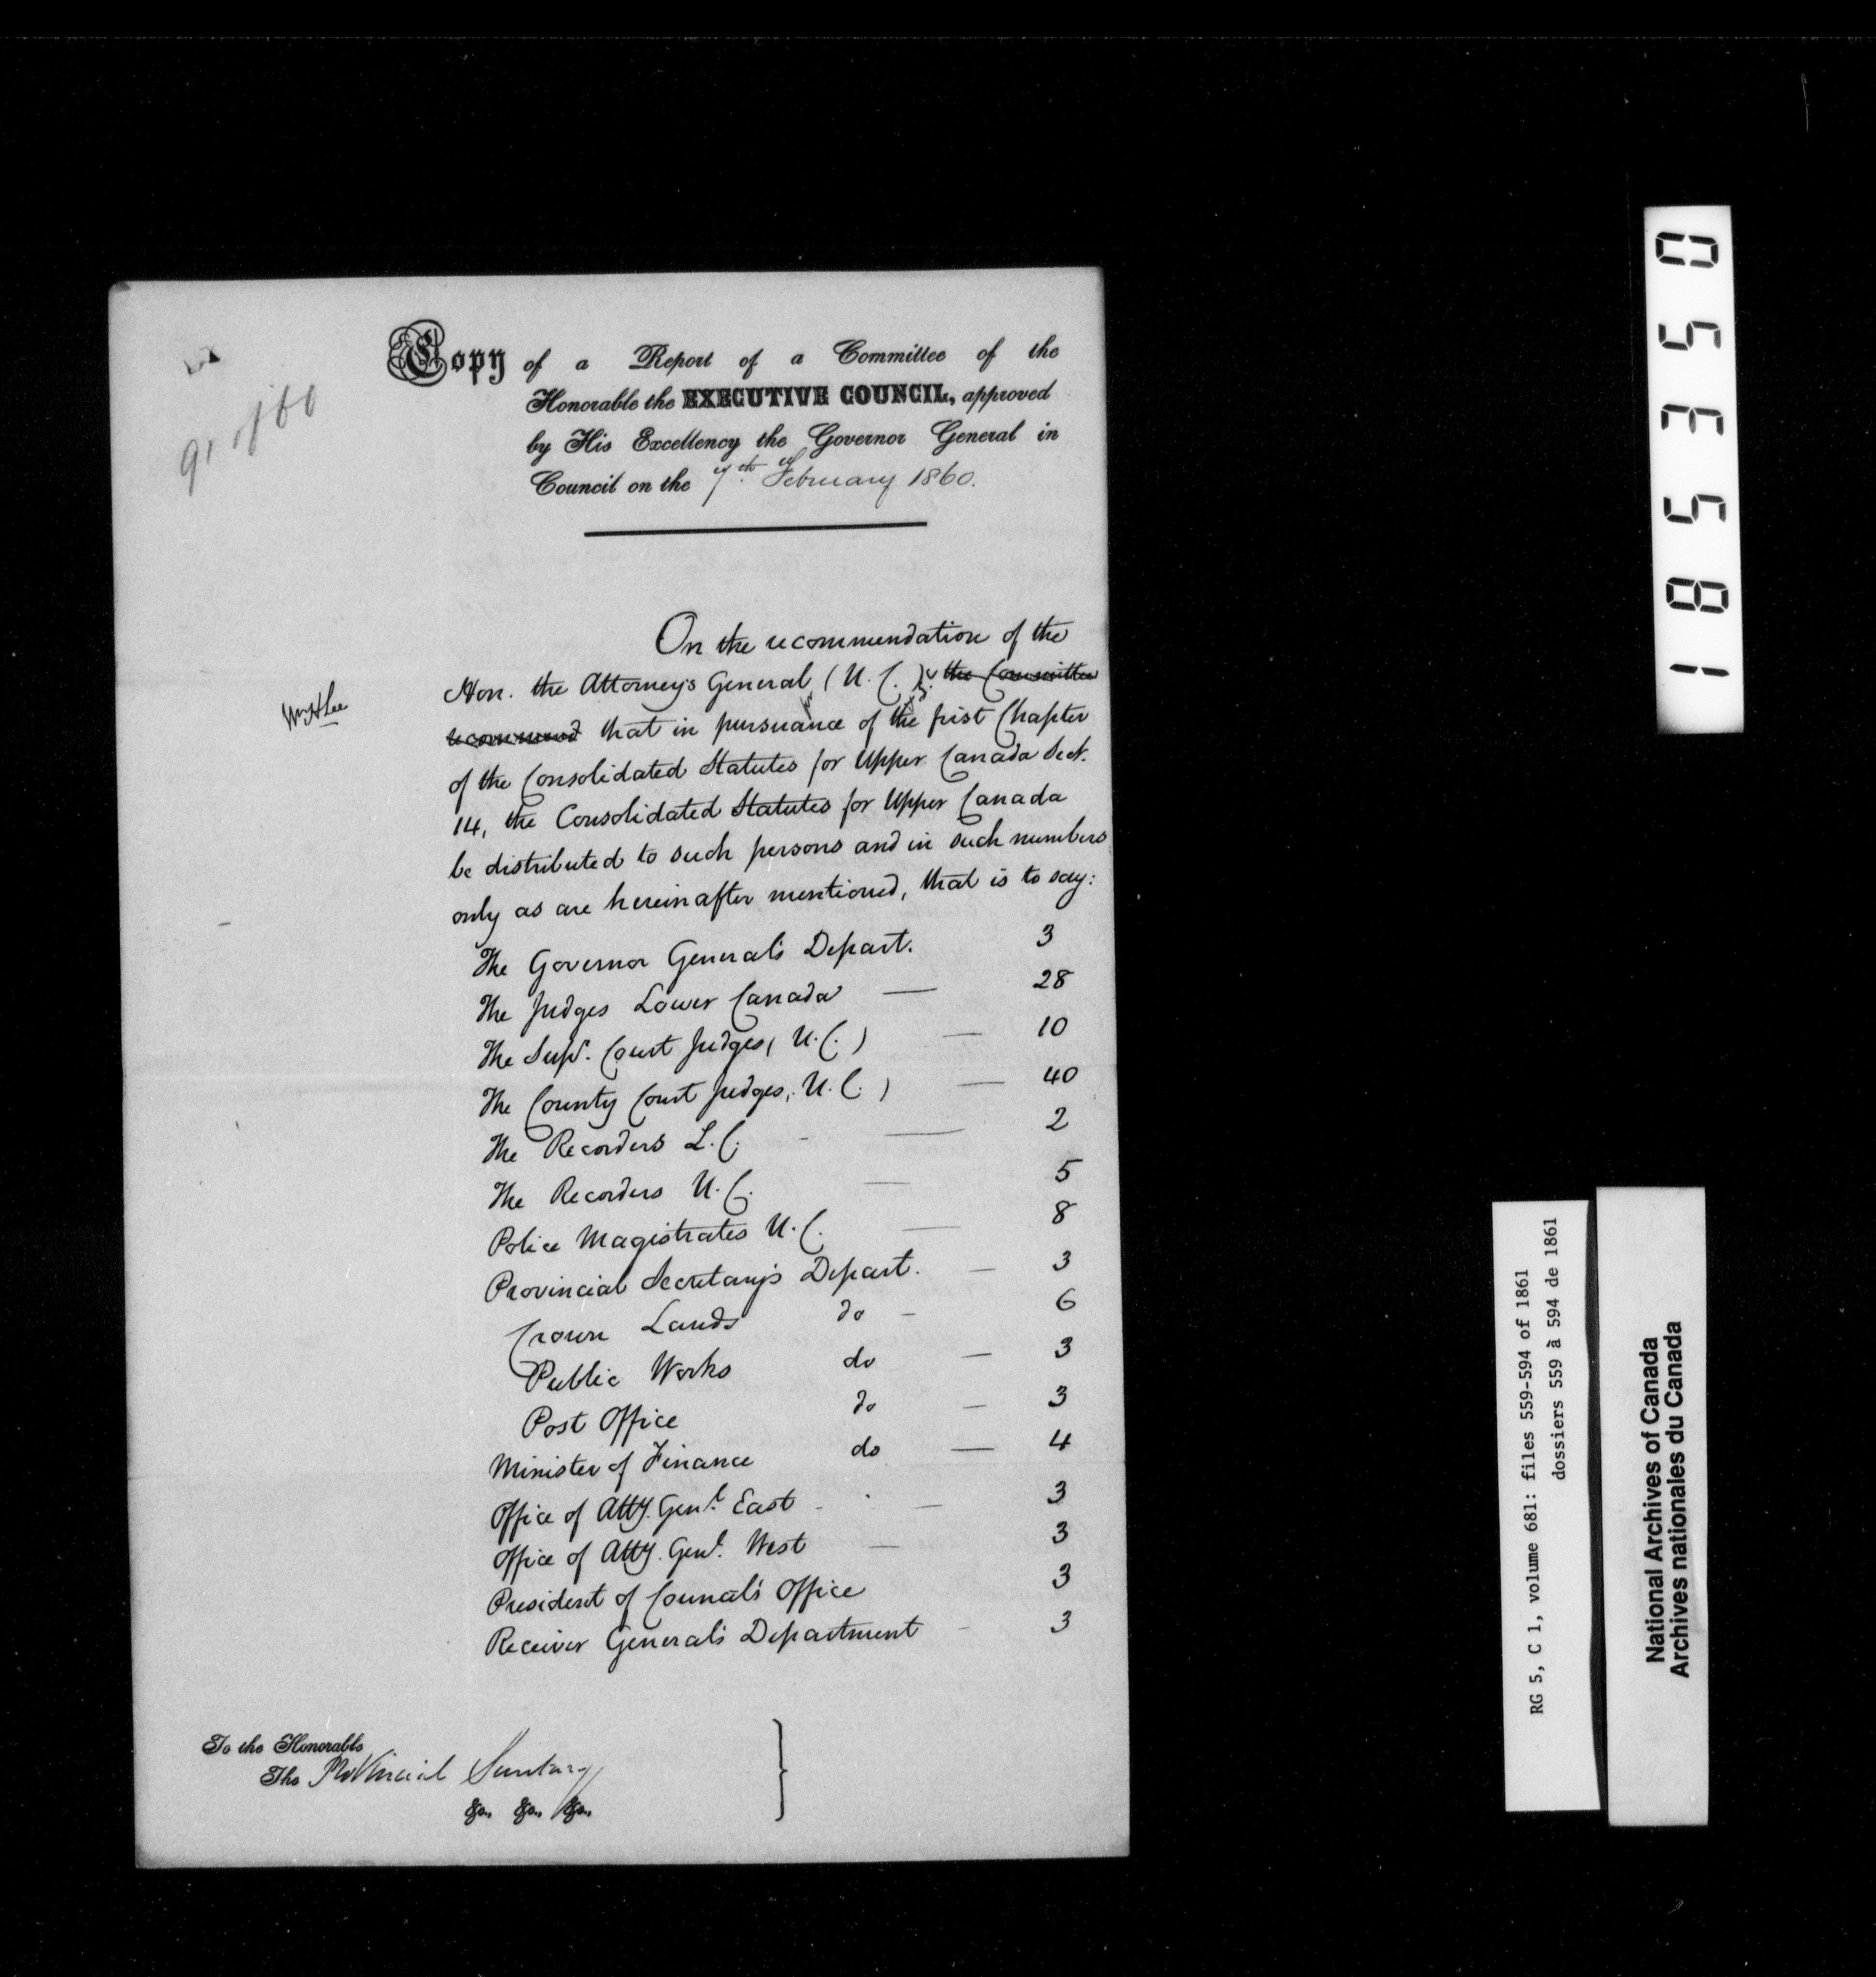 91 of 60
Copy of a Report of a Committee of the
Honorable the EXECUTIVE COUNCIL, approved
by His Excellency the Governor General in
Council on the 7th February 1860.
On the recommendation of the
Hon. the Attorney's General (U. C.) the Committee
recommend that in pursuance of the first Chapter
of the Consolidated Statutes for Upper Canada Sect.
14, the Consolidated Statutes for Upper Canada
be distributed to such persons and in such numbers
only as are hereinafter mentioned, that is to say:
WmHLee
The Governor General's Depart. 3
The Judges Lower Canada — 28
The Supr. Court Judges, U.C.) — 10
The County Court Judges, U.C.) — 40
The Recorders L.C. - — 2
The Recorders U.C. — 5
Police Magistrates U.C. — 8
Provincial Secretary's Depart. — 3
Crown Lands do — 6
Public Works do — 3
Post Office do — 3
Minister of Finance do — 4
Office of Atty. Genl. East - — 3
Office of Atty. Genl. West — 3
President of Council's Office 3
Receiver General's Department - 3
To the Honorable
The Provincial Secretary
&c., &c., &c.,
185350
RG 5, C 1, volume 681: files 559-594 of 1861
dossiers 559 à 594 de 1861
National Archives of Canada
Archives nationales du Canada